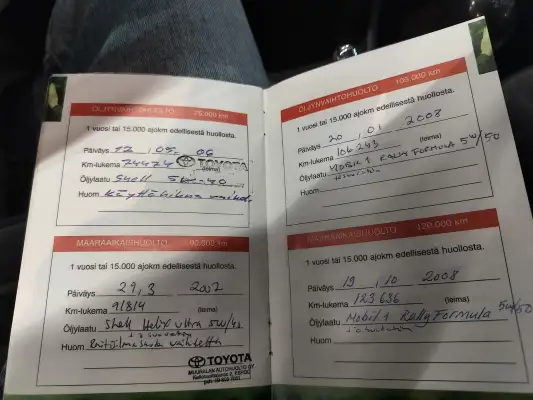 ÖLJYNVAIHTOHUOLTO 75.000 km
1 vuosi tai 15.000 ajokm edellisestä huollosta.
Päiväys 12.05.06
Km-lukema 74474 (leima) TOYOTA
Öljylaatu Shell 5W-40
Huom
MÄÄRÄAIKAISHUOLTO 90.000 km
1 vuosi tai 15.000 ajokm edellisestä huollosta.
Päiväys 29.3 2007
Km-lukema 91814 (leima)
Öljylaatu Shell Helix Ultra 5W/40
Huom raitisilmasuod. vaihdettu
TOYOTA
MUURALAN AUTOHUOLTO OY
ÖLJYNVAIHTOHUOLTO 105.000 km
1 vuosi tai 15.000 ajokm edellisestä huollosta.
Päiväys 20.01 2008
Km-lukema 106243 (leima)
Öljylaatu MOBIL 1 RALLY FORMULA 5W/50
Huom
MÄÄRÄAIKAISHUOLTO 120.000 km
1 vuosi tai 15.000 ajokm edellisestä huollosta.
Päiväys 19.10 2008
Km-lukema 123636 (leima)
Öljylaatu Mobil 1 Rally Formula 5W/50
Huom